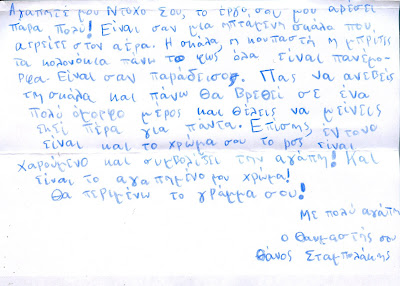 Αγαπητέ μου Ντύχο Σου, το έργο σου μου αρέσει
πάρα πολύ! Είναι σαν μια ιπτάμενη σκάλα που
στον αέρα. Η σκάλα, η κουπαστή
τα κολονάκια πάνω το φως όλα είναι πανέμο-
ρφα. Είναι σαν παράδεισος. Πας να ανεβείς
τη σκάλα και πάνω θα βρεθεί σε ένα
πολύ όμορφο μέρος και θέλεις να μείνεις
εκεί πέρα για πάντα. Επίσης έντονο
είναι και το χρώμα σου το ροζ είναι
χαρούμενο και συμβολίζει την αγάπη! Και
είναι το αγαπημένο μου χρώμα!
Θα περιμένω το γράμμα σου!
Με πολύ αγάπη
ο θαυμαστής σου
Θάνος Σταμπολάκης